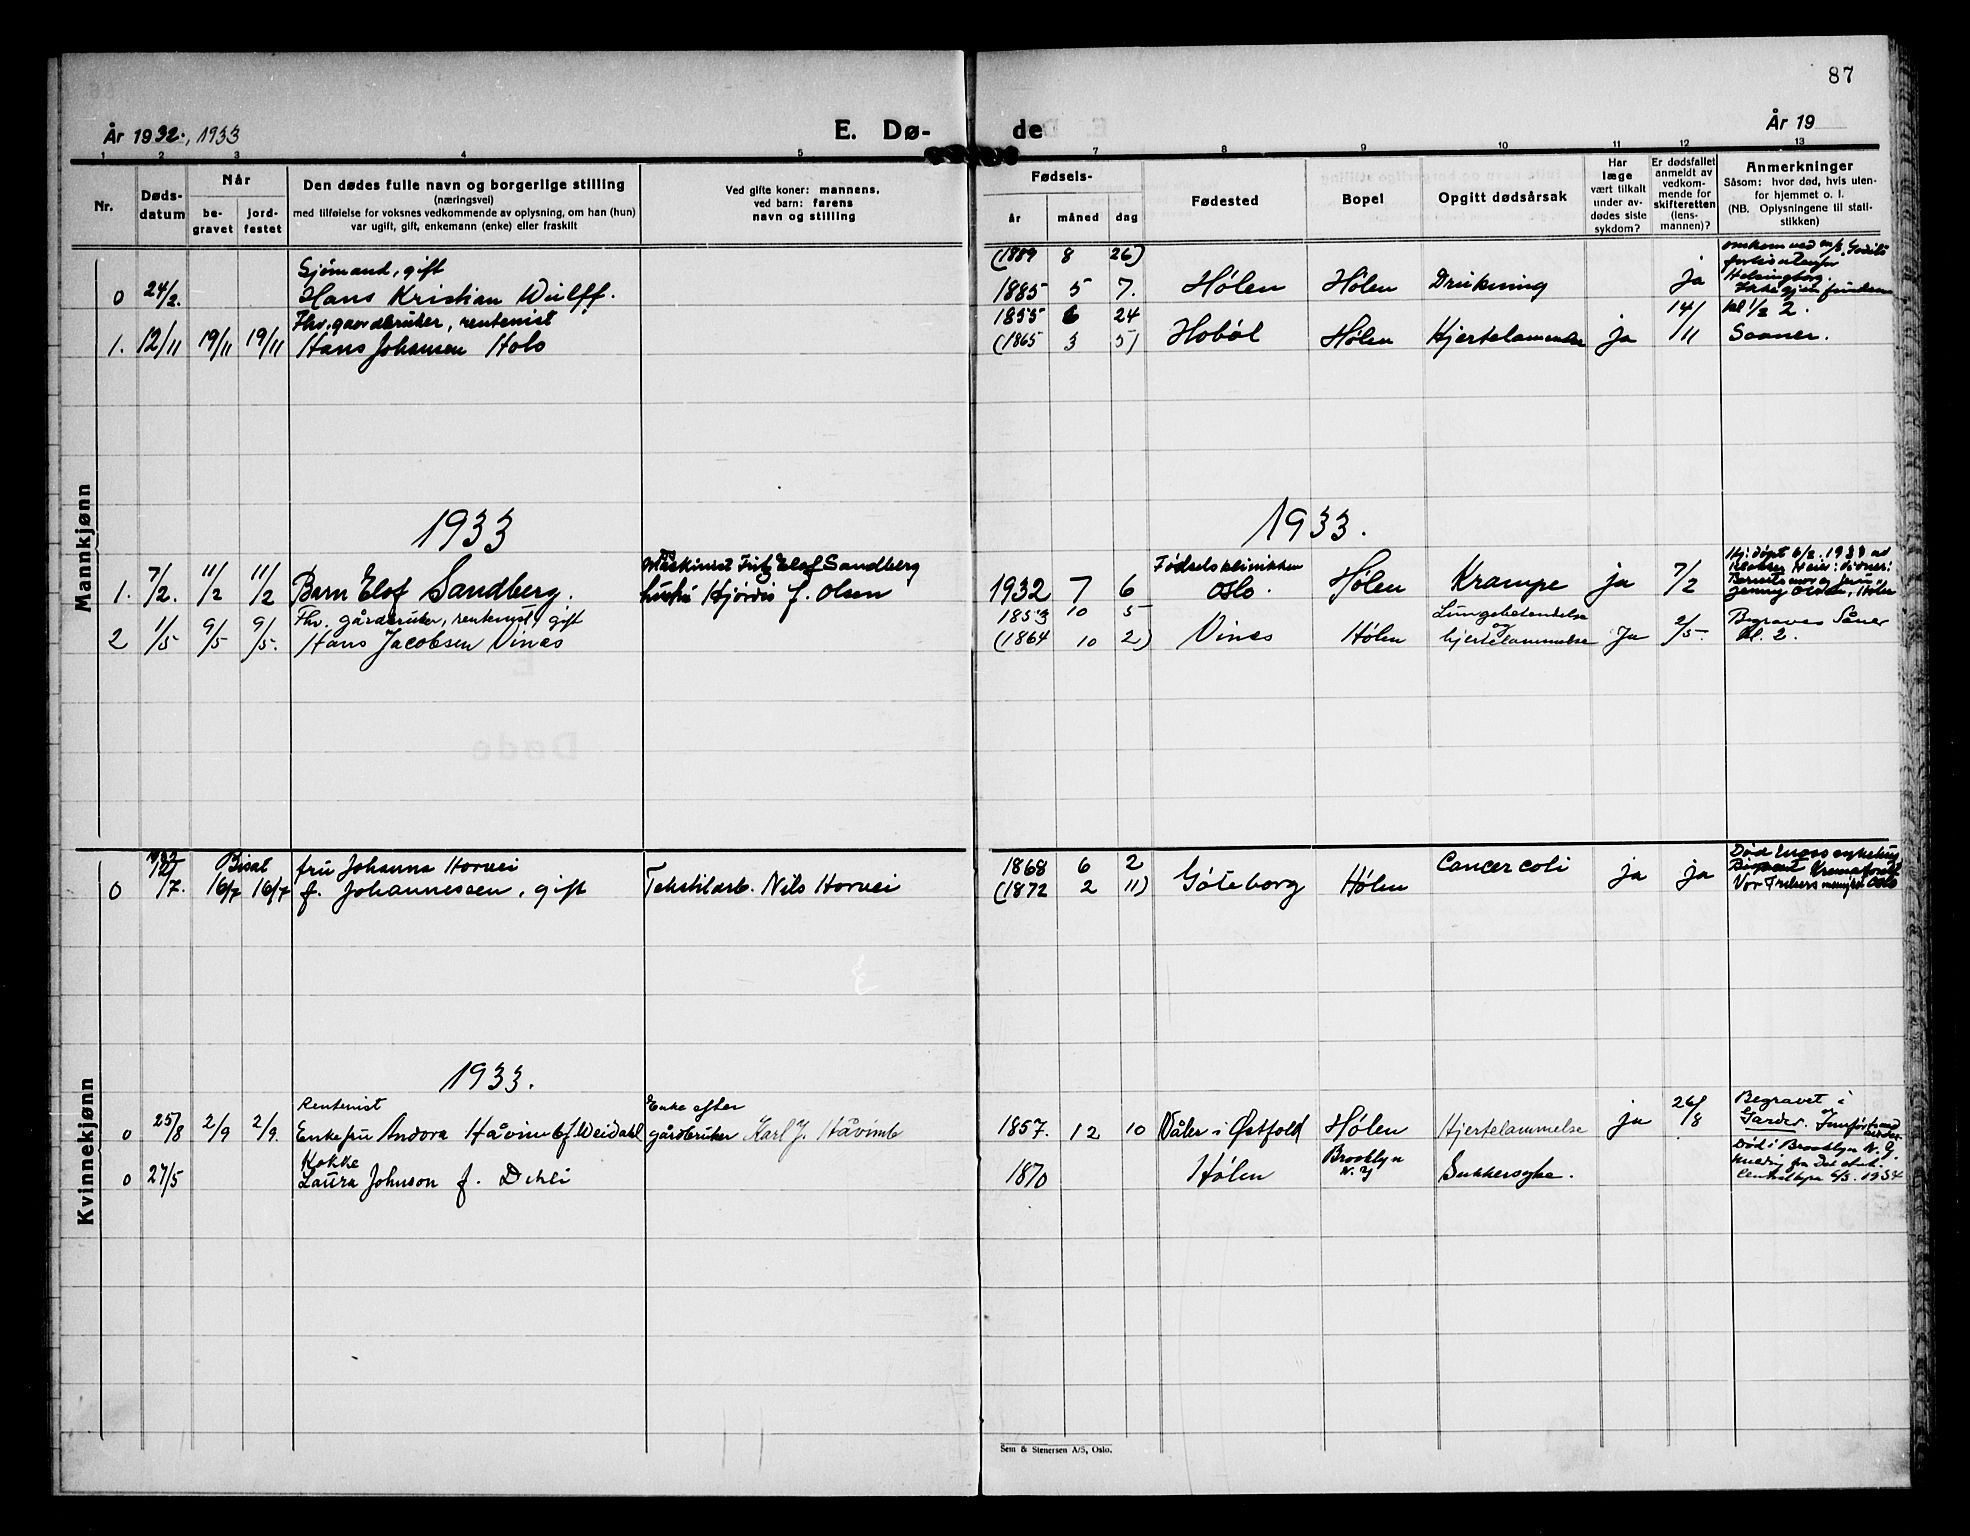 87
År 1932, 1933
E. Dø-
de
År 19
1 2 3 4 5 7 8 9 10 11 12 13
Nr.
Døds-
datum
Når
be-
gravet
jord-
festet
Den dødes fulle navn og borgerlige stilling
(næringsvei)
med tilføielse for voksnes vedkommende av oplysning, om han (hun)
var ugift, gift, enkemann (enke) eller fraskilt
Ved gifte koner: mannens,
ved barn: farens
navn og stilling
Fødsels-
år måned dag
Fødested
Bopel
Opgitt dødsårsak
Har
læge
vært tilkalt
under av-
dødes siste
sykdom?
Er dødsfallet
anmeldt av
vedkom-
mende for
skifteretten
(lens-
mannen)?
Anmerkninger
Såsom: hvor død, hvis uten-
for hjemmet o. l.
(NB. Oplysningene til stati-
stikken)
Mannkjønn
Sjømand, gift (1889 8 26) omkom ved m/s.
0 24/2. Hans Kristian Wulff. 1885 5 7. Hølen Hølen Drukning ja
Helsingborg.
Fhv. gaardbruker, rentenist 1855 6 24 14/11 kl 1/2 2.
1. 12/11 19/11 19/11 Hans Johansen Holo (1865 3 5) Hobøl Hølen Hjertelammelse ja Saaner.
1933 1933.
Maskinist Fritz Elof Sandberg Fødselsklinikken Hj: døpt 6/2. 1933 av
1. 7/2. 11/2 11/2 Barn Elof Sandberg. hustru Hjørdis f. Olsen 1932 7 6 Oslo. Hølen Krampe ja 7/2
Fhv. gårdbruker, rentenist, gift 1853 10 5 Lungebetendelse og Begraves Såner
2 1/5 9/5 9/5. Hans Jacobsen Vinæs (1864 10 2) Vinæs Hølen hjertelammelse Ja 2/5. kl. 2.
Kvinnekjønn
1932 Bisat fru Johanna Horvei 1868 6 2 Cancer coli
0 12/7. 16/7 16/7 f. Johannessen, gift Tekstilarb. Nils Horvei (1872 2 11) Göteborg Hølen ja ja
Vor Frelsers Oslo
1933.
Rentenist Enke efter 26/8 Begravet i
0 25/8 2/9 2/9. Enkefru Andora Håvimb f. Weidahl gårdbruker Karl J. Håvimb 1857. 12 10 Våler i Østfold Hølen Hjertelammelse ja Garder.
Kokke Brooklyn N. Y Død i Brooklyn N. Y.
0 27/5 Laura Johnson f. Dehli 1870 Hølen Sukkersyke.
6/3. 1934
Sem & Stenersen A/S, Oslo.